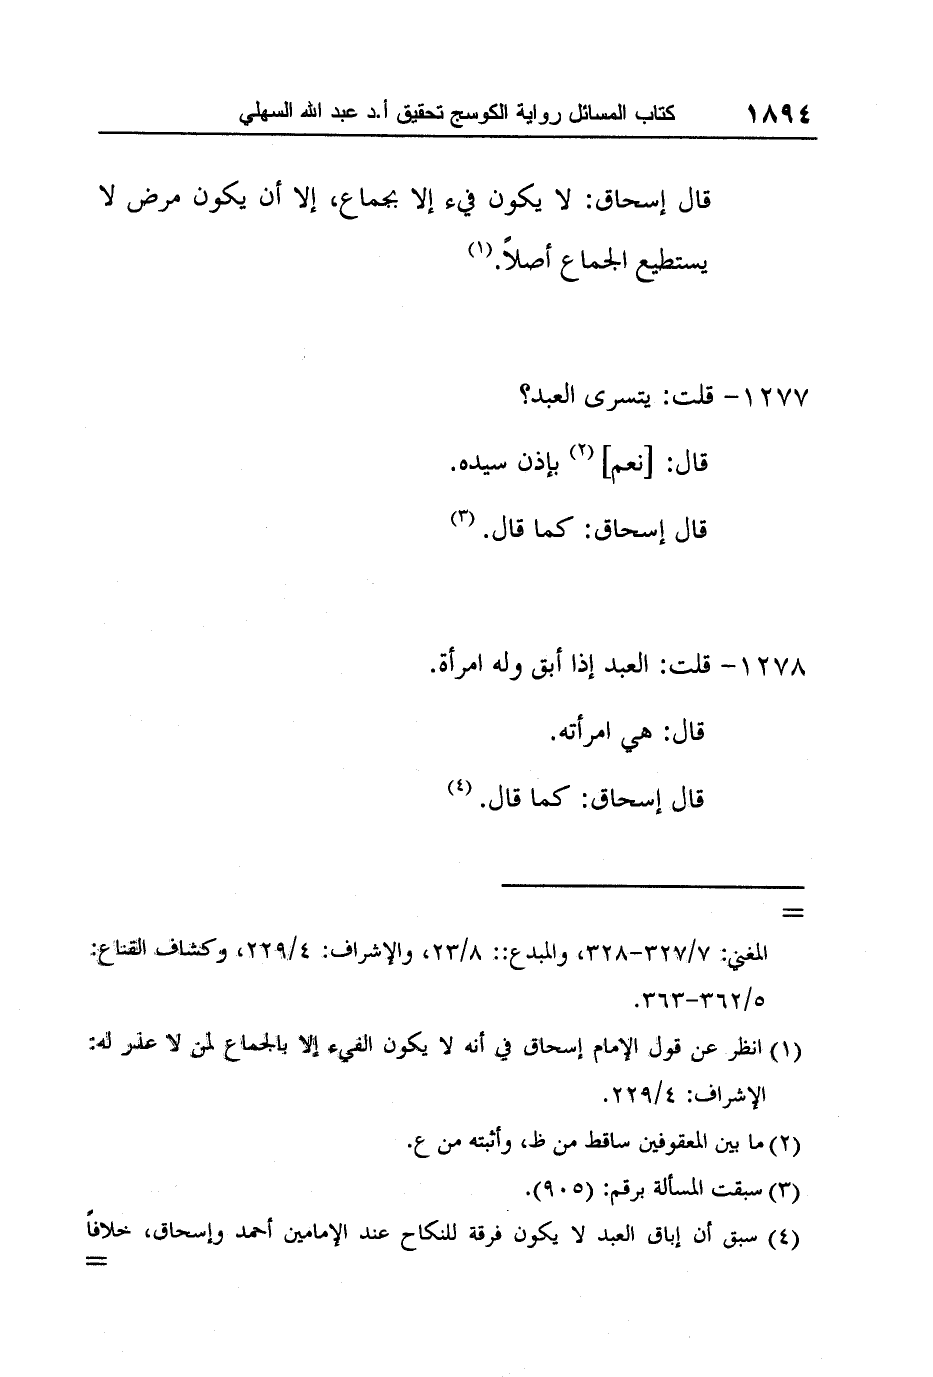 ١٨٩٤ كتاب المسائل رواية الكوسج تحقيق أ.د عبد الله السهلي
قال إسحاق: لا يكون فيء إلا بجماع، إلا أن يكون مرض لا
يستطيع الجماع أصلاً.(١)
١٢٧٧- قلت: يتسرى العبد؟
قال: [نعم](٢) بإذن سيده.
قال إسحاق: كما قال.(٣)
١٢٧٨- قلت: العبد إذا أبق وله امرأة.
قال: هي امرأته.
قال إسحاق: كما قال.(٤)
=
المغني: ٣٢٧/٧-٣٢٨، والمبدع:: ٢٣/٨، والإشراف: ٢٢٩/٤، وكشاف القناع:
٣٦٢/٥-٣٦٣.
(١) انظر عن قول الإمام إسحاق في أنه لا يكون الفيء إلا بالجماع لمن لا عذر له:
الإشراف: ٢٢٩/٤.
(٢) ما بين المعقوفين ساقط من ظ، وأثبته من ع.
(٣) سبقت المسألة برقم: (٩٠٥).
(٤) سبق أن إباق العبد لا يكون فرقة للنكاح عند الإمامين أحمد وإسحاق، خلافاً
=